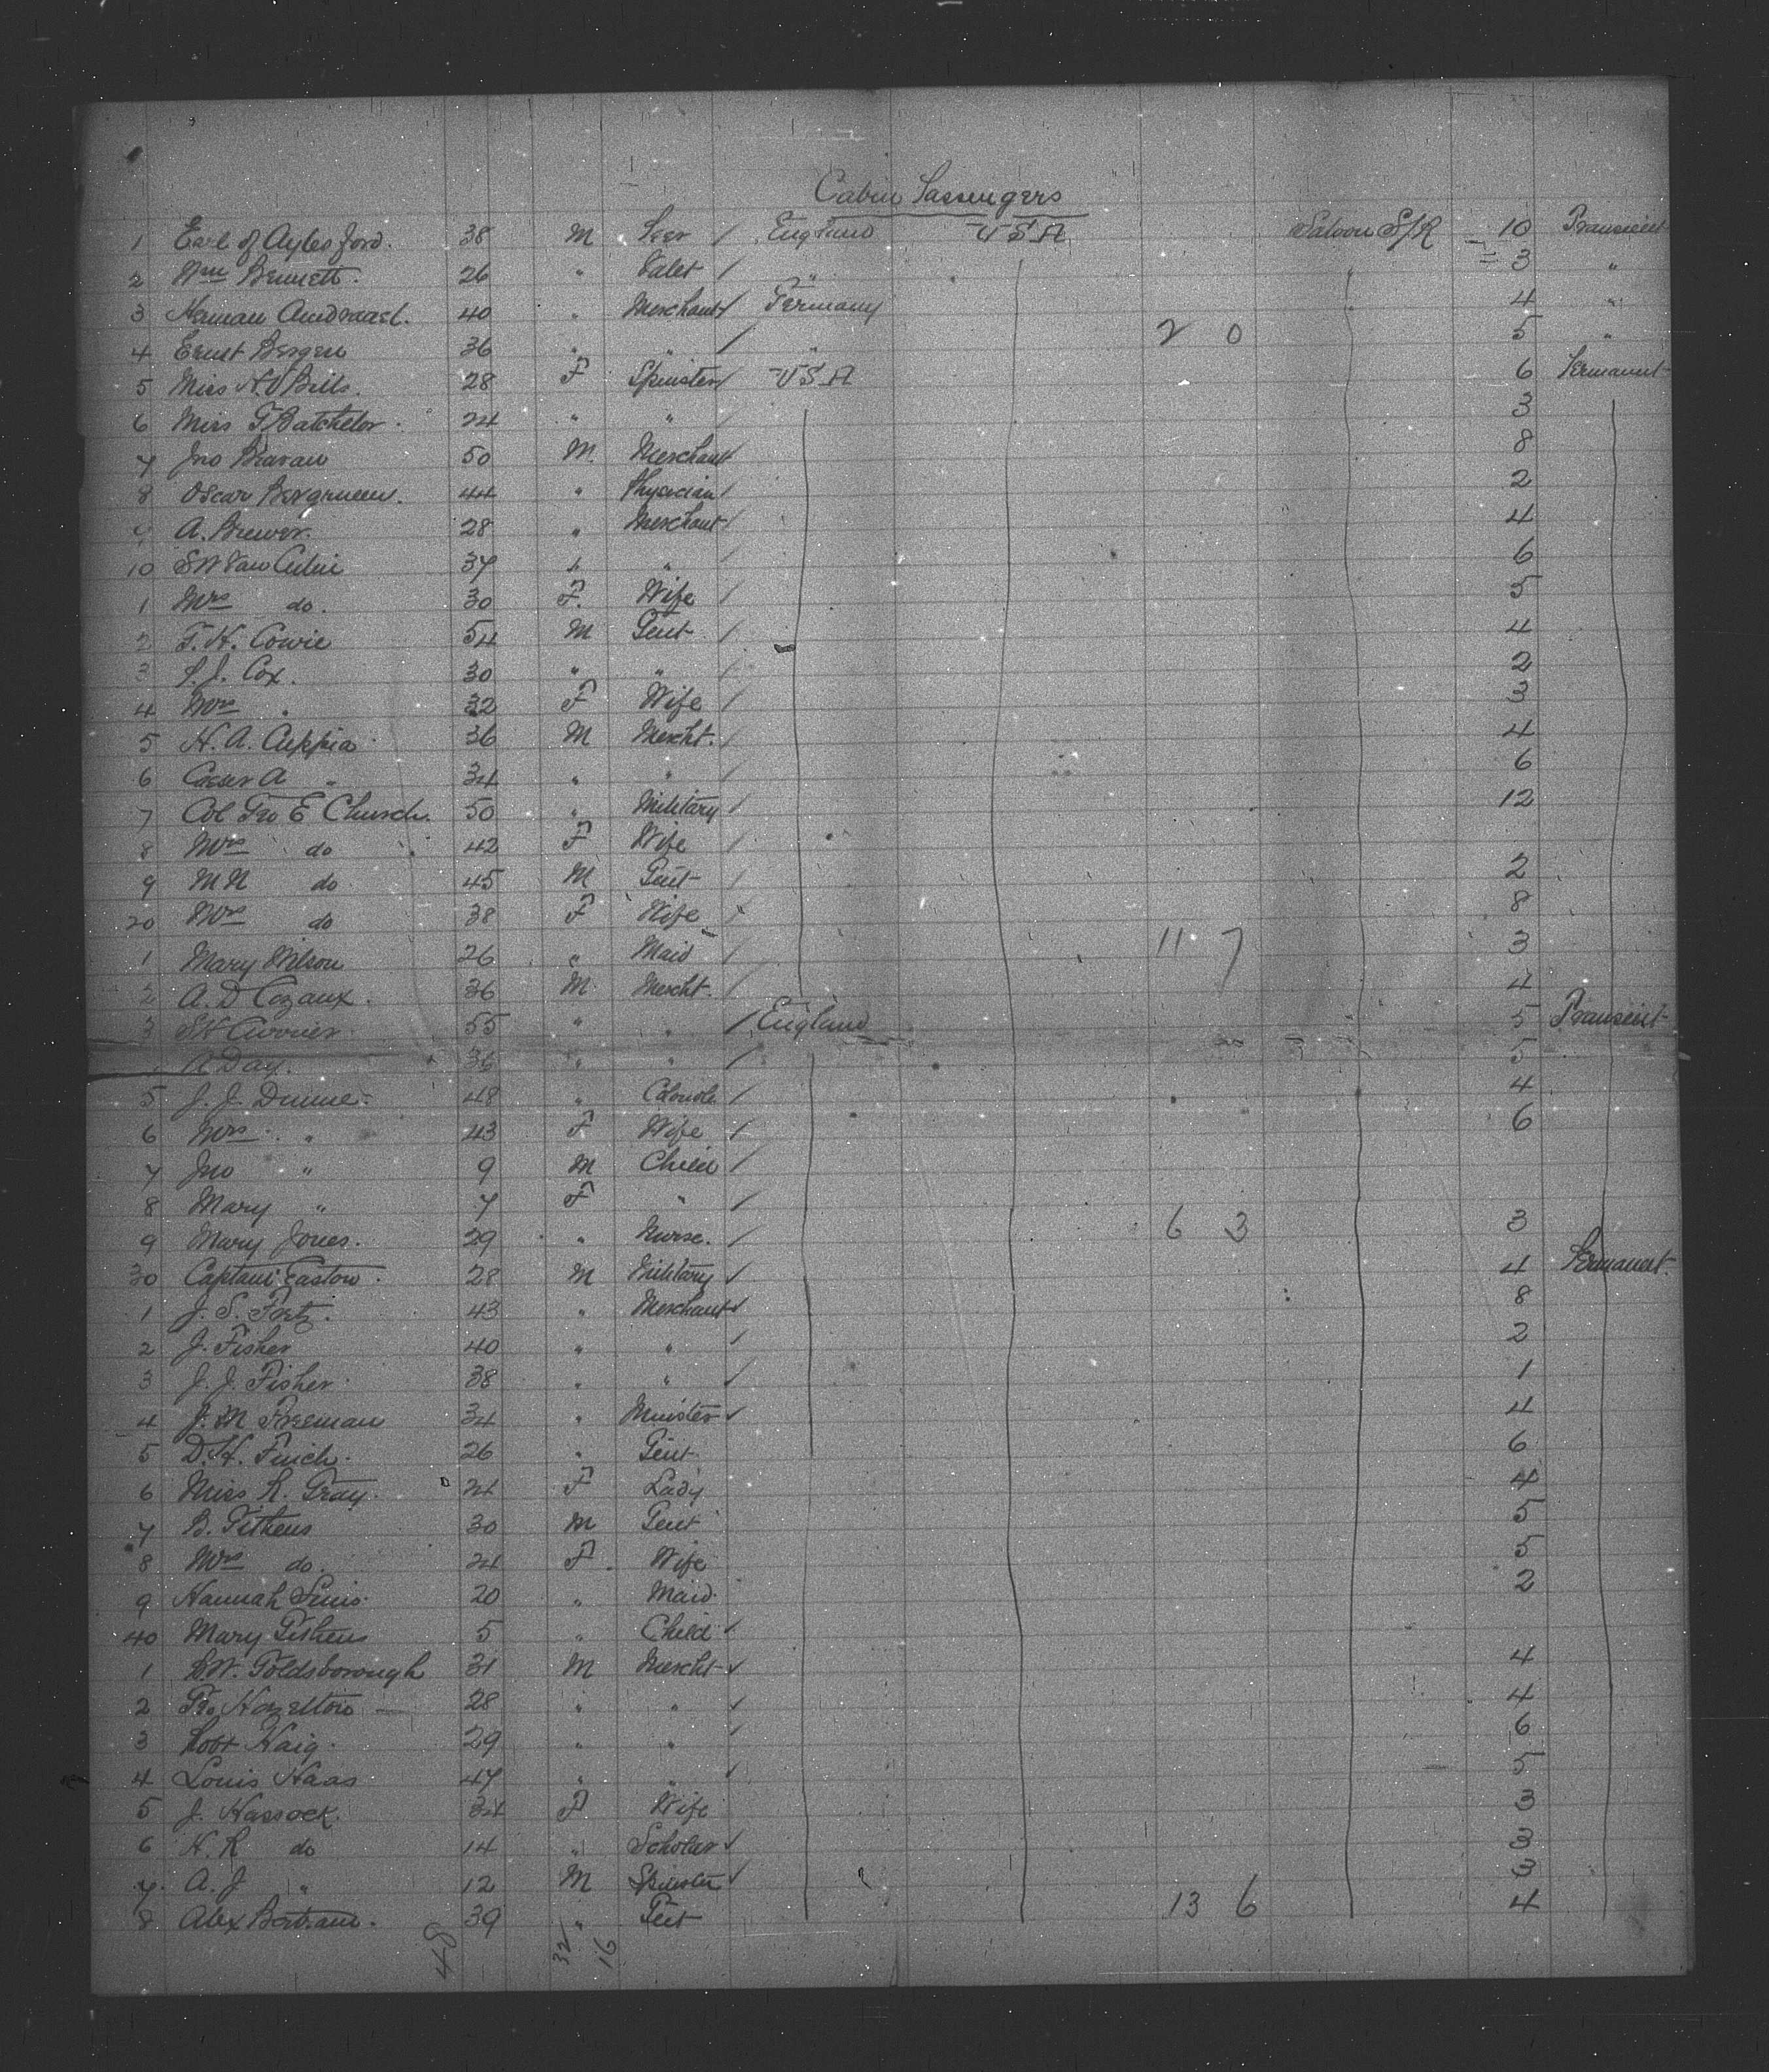 Cabin Passengers
1 Earl of Aylesford. 38 M Peer / England USA Saloon S/R 10 Transient
2 Wm Bennett. 26 " Valet / " 3 "
3 Herman 40 " Merchant / Germany 4 "
4 Ernst Bergen 36 " " / " 2 0 5 "
5 Miss 28 F Spinster / USA 6 Permanent
6 Miss F Batchelor. 24 " " / 3
7 Jno Bravan 50 M. Merchant 8
8 Oscar Bergrueen. 44 " Physician / 2
9 A. Brewer. 28 " Merchant / 4
10 37 " " / 6
1 Mrs do. 30 F. Wife / 5
2 F. H. Cowie 54 M Gent / 4
3 Cox. 30 " " / 2
4 Mrs " 32 F Wife / 3
5 H. A. Cuppia 36 M Mercht. / 4
6 A " 34 " " / 6
7 Col Geo E Church. 50 " Military / 12
8 Mrs do 42 F Wife /
9 M N do 45 M Gent / 2
20 Mrs do 38 F Wife / 8
1 Mary Wilson 26 " Maid / 11 7 3
2 A. D Cozaux. 36 M Mercht. / 4
3 Currier 55 " " / England 5 Transient
Day. 36 " " / 5
5 J. J Dunne 48 " / 4
6 Mrs " 43 F Wife / 6
7 Jno " 9 M Child /
8 Mary " 7 F " /
9 Mary Jones. 29 " Nurse. / 6 3 3
30 Captain Easton. 28 M Military / 4 Permanent
1 J. S. 43 " Merchant / 8
2 J. Fisher 40 " " / 2
3 J. J. Fisher 38 " " / 1
4 J. M Freeman 34 " Minister / 4
5 D. H. Finch. 26 " Gent 6
6 Miss R. Gray. 24 F Lady 4
7 B. Githens 30 M Gent 5
8 Mrs do. 24 F. Wife 5
9 Hannah 20 " Maid. 2
40 Mary Githens 5 " Child /
1 Goldsborough 31 M Mercht / 4
2 Geo Hazelton 28 " " / 4
3 Robt Haig. 29 " " / 6
4 Louis Haas 47 " " / 5
5 J. Hassock. 34 F Wife 3
6 H. R do 14 " Scholar / 3
7. A. J " 12 M Spinster / 3
8 Alex Bertram. 39 " Gent 13 6 4
48 32 16